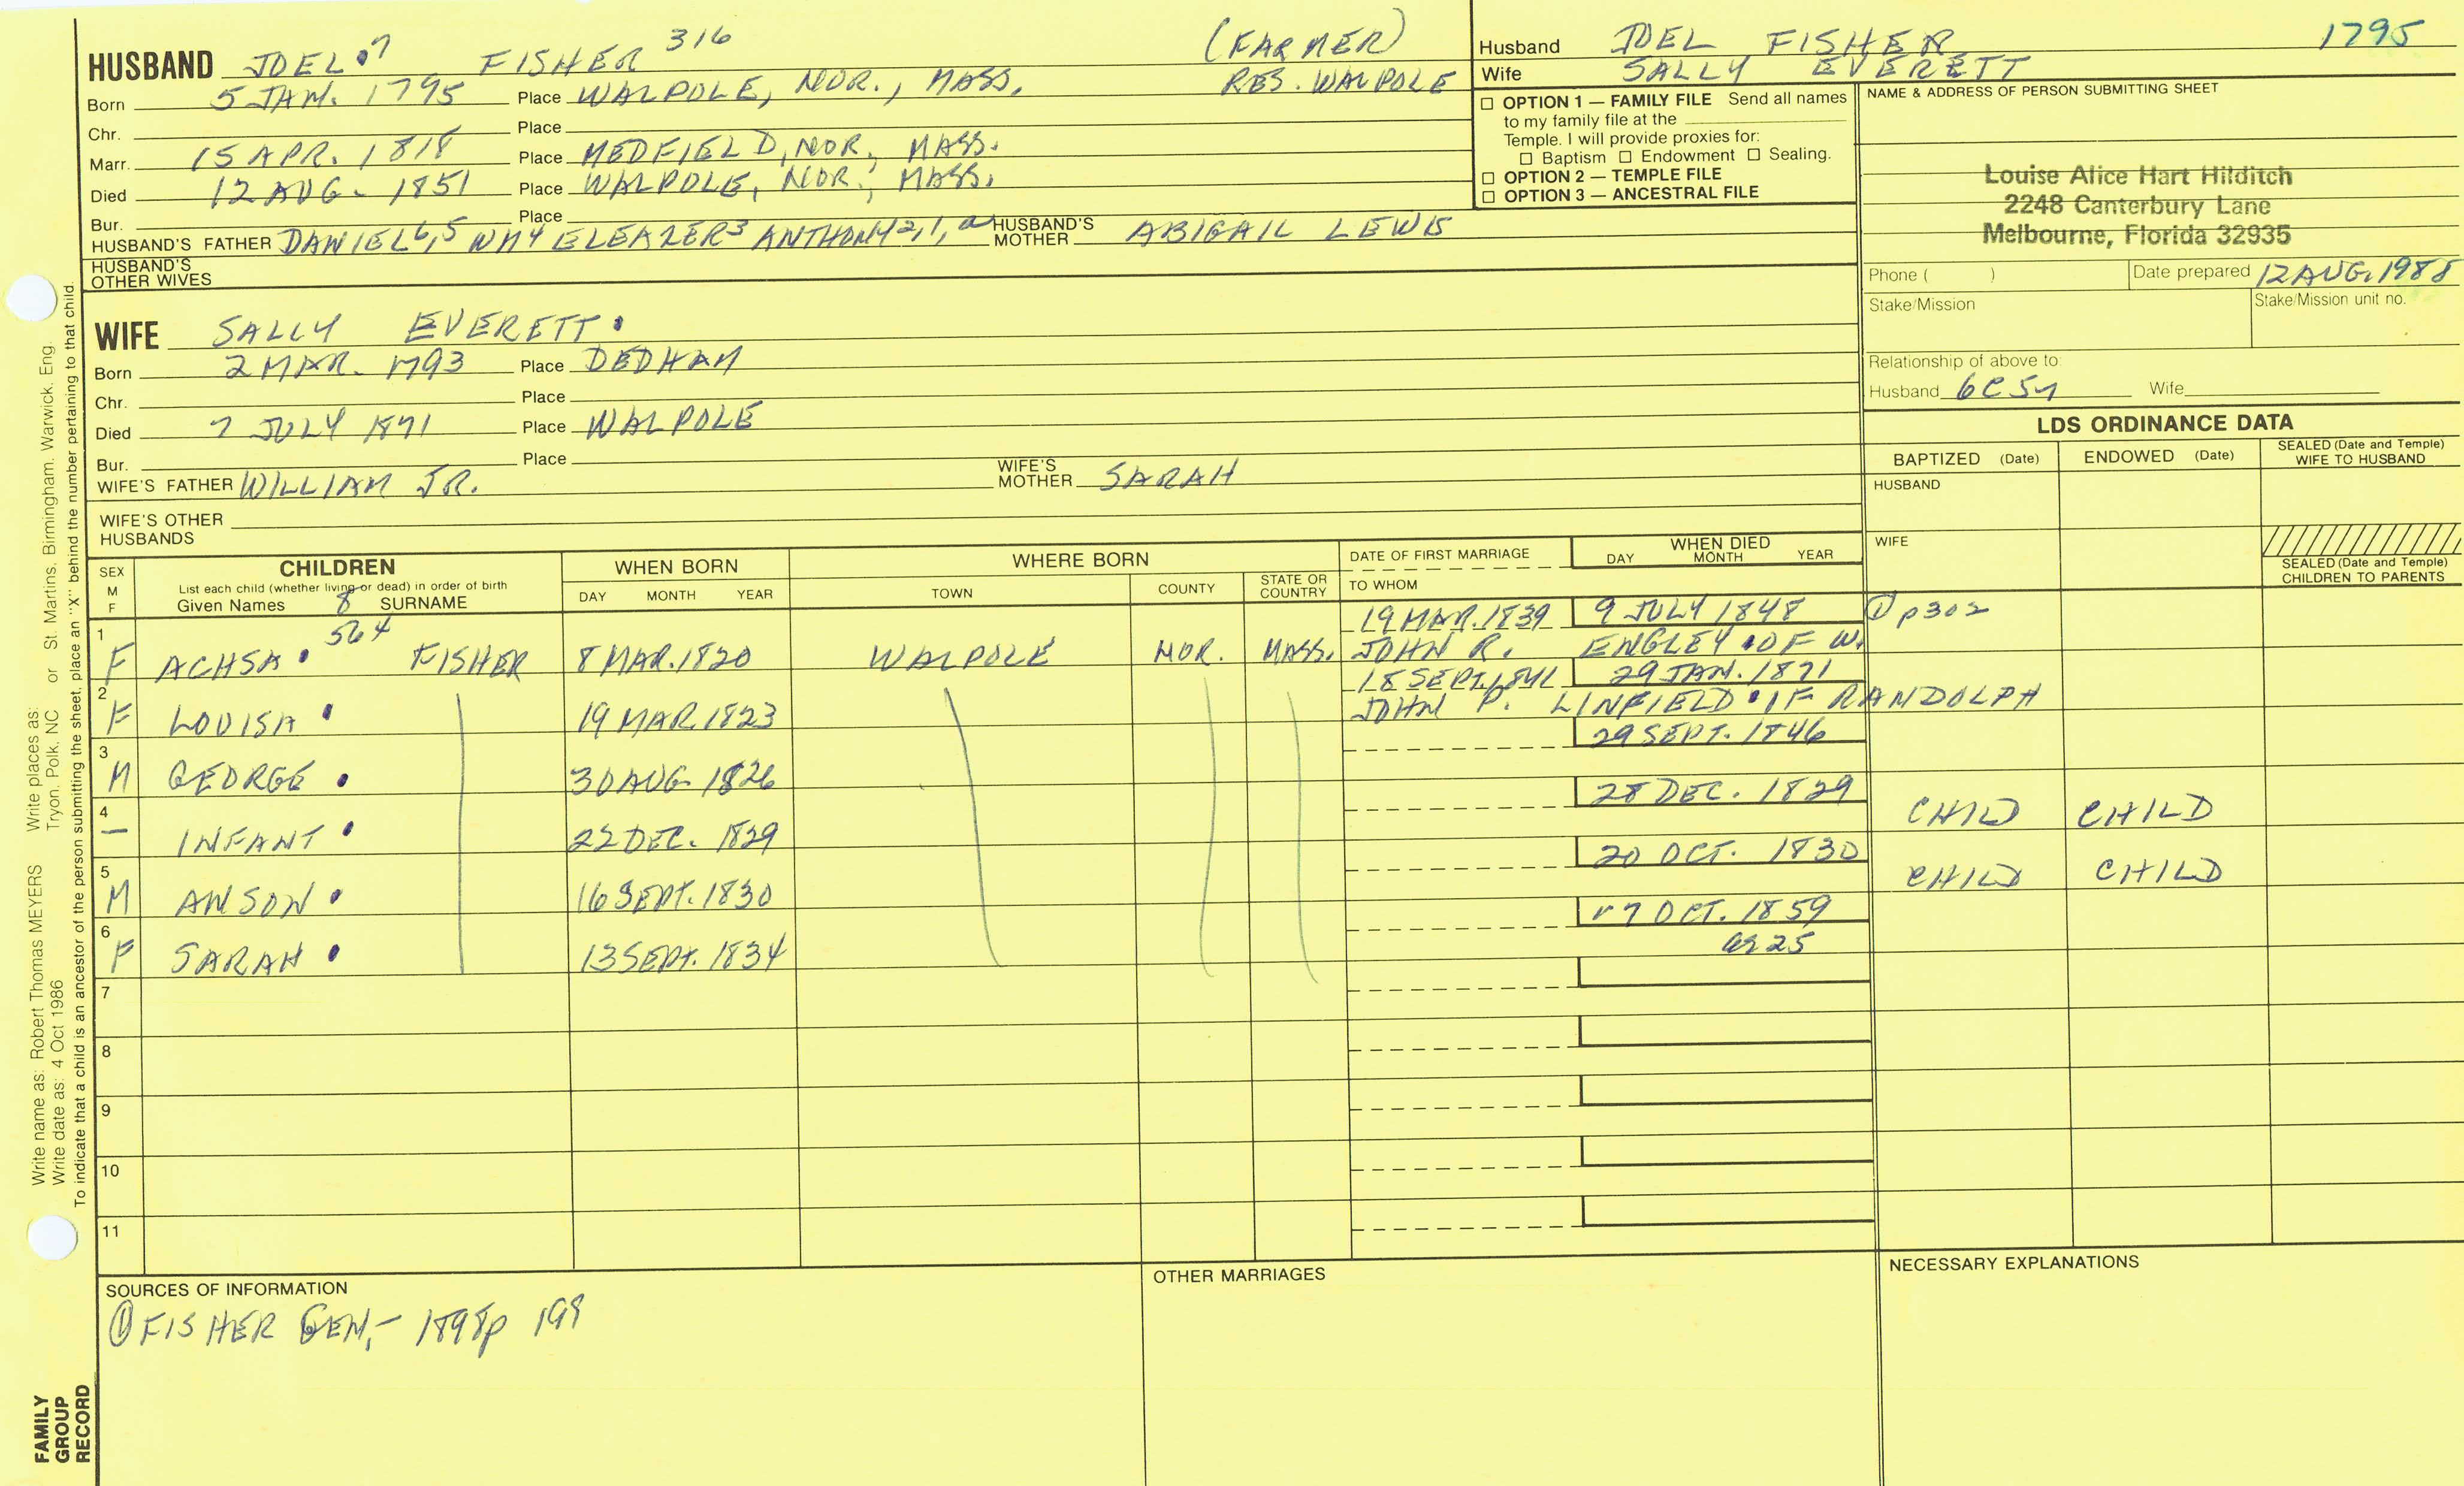 HUSBAND JOEL 7 FISHER 316 (FARMER)
Born 5 JAN. 1795 Place WALPOLE, NOR., MASS. RES. WALPOLE
Chr. Place
Marr. 15 APR. 1818 Place MEDFIELD, NOR., MASS.
Died 12 AUG. 1851 Place WALPOLE, NOR., MASS.
Bur. Place
HUSBAND'S FATHER DANIEL 6,5 WM 4 ELEAZER 3 ANTHONY 2,1,a HUSBAND'S MOTHER ABIGAIL LEWIS
HUSBAND'S OTHER WIVES
WIFE SALLY EVERETT
Born 2 MAR. 1793 Place DEDHAM
Chr. Place
Died 7 JULY 1871 Place WALPOLE
Bur. Place
WIFE'S FATHER WILLIAM JR. WIFE'S MOTHER SARAH
WIFE'S OTHER HUSBANDS
Husband JOEL FISHER 1795
Wife SALLY EVERETT
☐ OPTION 1 — FAMILY FILE Send all names
to my family file at the
Temple. I will provide proxies for:
☐ Baptism ☐ Endowment ☐ Sealing.
☐ OPTION 2 — TEMPLE FILE
☐ OPTION 3 — ANCESTRAL FILE
NAME & ADDRESS OF PERSON SUBMITTING SHEET
Louise Alice Hart Hilditch
2248 Canterbury Lane
Melbourne, Florida 32935
Phone ( ) Date prepared 12 AUG. 1988
Stake/Mission Stake/Mission unit no.
Relationship of above to:
Husband 6C5 Wife
LDS ORDINANCE DATA
BAPTIZED (Date) ENDOWED (Date) SEALED (Date and Temple) WIFE TO HUSBAND
HUSBAND
WIFE
SEALED (Date and Temple) CHILDREN TO PARENTS
SEX M F CHILDREN WHEN BORN WHERE BORN DATE OF FIRST MARRIAGE WHEN DIED
List each child (whether living or dead) in order of birth DAY MONTH YEAR TOWN COUNTY STATE OR COUNTRY TO WHOM DAY MONTH YEAR
Given Names 8 SURNAME
1 19 MAR. 1839 9 JULY 1848 ① p302
F ACHSA 564 FISHER 8 MAR. 1820 WALPOLE NOR. MASS. JOHN R. ENGLEY OF W.
2 18 SEPT. 1841 29 JAN. 1871
F LOUISA 19 MAR. 1823 JOHN P. LINFIELD OF RANDOLPH
3 29 SEPT. 1846
M GEORGE 30 AUG. 1826
4 28 DEC. 1829
— INFANT 22 DEC. 1829 CHILD CHILD
5 20 OCT. 1830
M ANSON 16 SEPT. 1830 CHILD CHILD
6 7 OCT. 1859
F SARAH 13 SEPT. 1834 ag 25
7
8
9
10
11
SOURCES OF INFORMATION
① FISHER GEN,- 1898 p 199
OTHER MARRIAGES
NECESSARY EXPLANATIONS
Write name as: Robert Thomas MEYERS Write places as:
Write date as: 4 Oct 1986 Tryon, Polk, NC or St. Martins, Birmingham, Warwick, Eng.
To indicate that a child is an ancestor of the person submitting the sheet, place an "X" behind the number pertaining to that child.
FAMILY
GROUP
RECORD